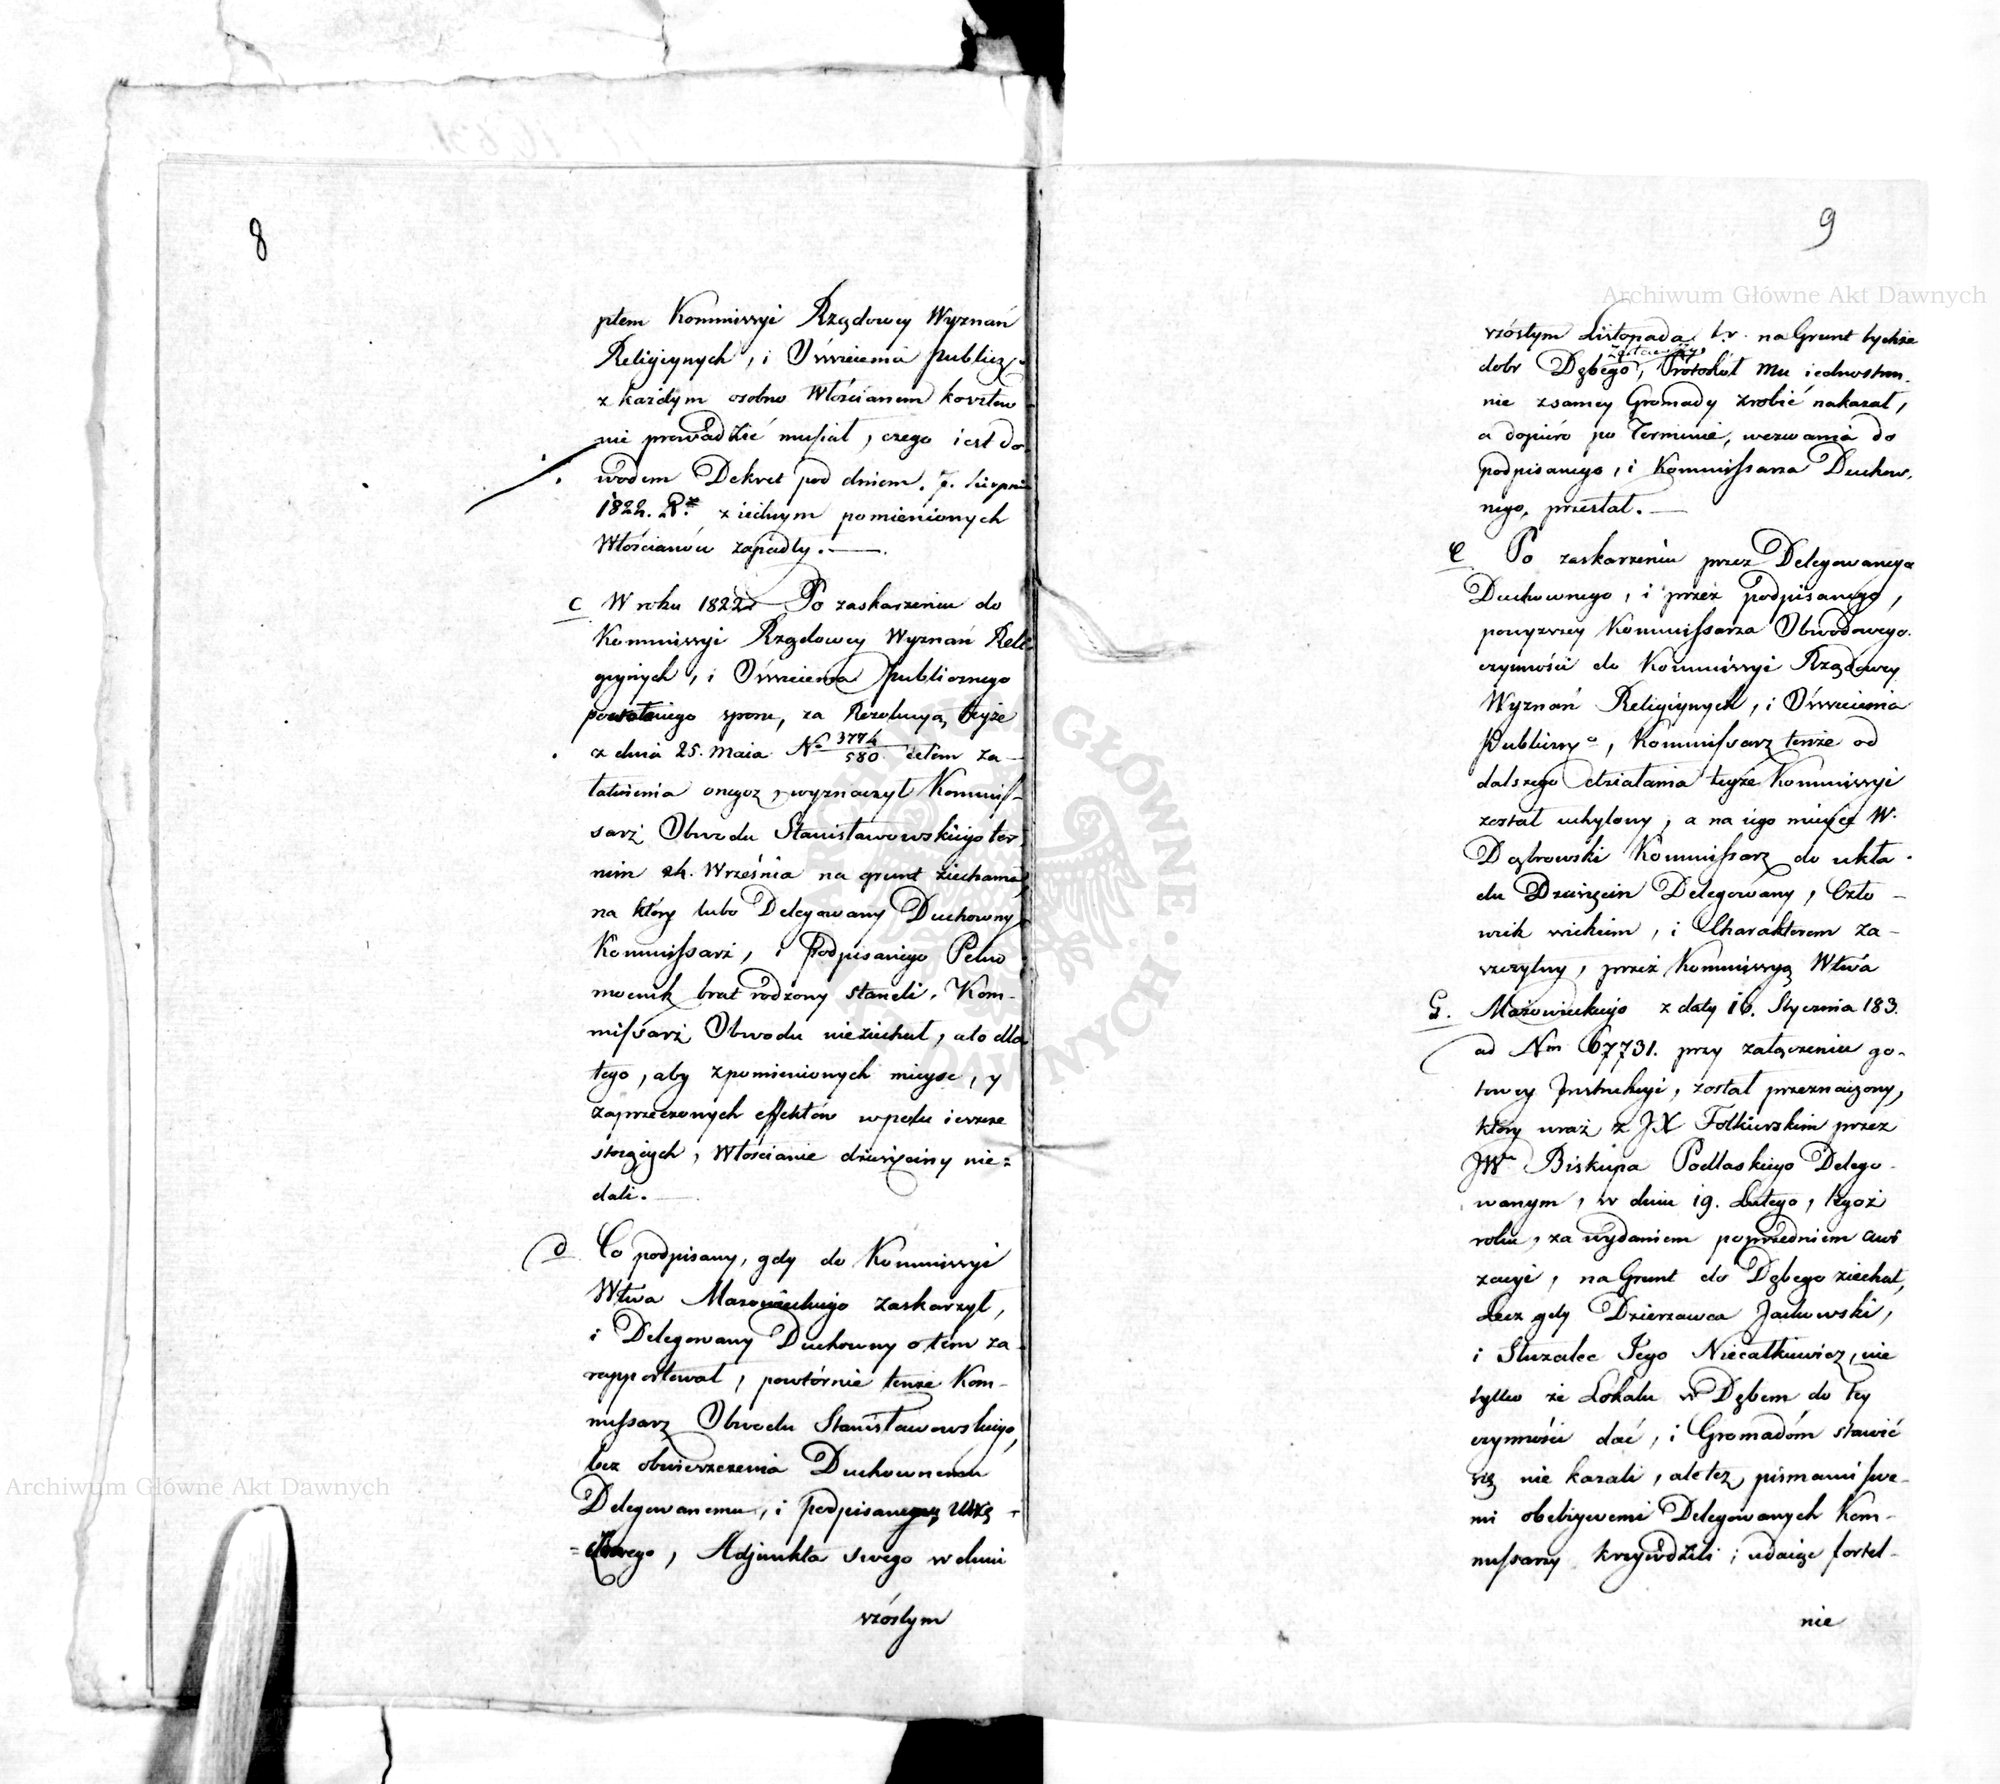 8
ptem Kommissyi Rządowey Wyznań
Religiynych, i Oświecenia publicz.
z każdym osobno Włościanem kosztow
nie prowadzić musiał, czego iest do
wodem Dekret pod dniem 7. sierpnia
1822. R. z iednym pomienionych
Włościanów zapadły.
c W roku 1822 Po zaskarzeniu do
Kommissyi Rządowey Wyznań Reli-
giynych, i Oświecenia publicznego
spore, za Rezolucyą teyże
z dnia 25. Maia No 3774/580 celem za-
łatwienia onegoz, wyznaczył Kommis-
sarz Obwodu Stanisławowskiego ter
min 24. Września na grunt ziechania,
na który lubo Delegowany Duchowny
Kommissarz, i Podpisanego Pełno
mocnik brat rodzony staneli, Kom-
missarz Obwodu nieziechał, ato dla
tego, aby z pomienionych mieysc, y
zaprzeczonych effektów w pełu ieszcze
stoiących, Włościanie dziesięciny nie=
dali.
d Co podpisany, gdy do Kommissyi
Wtwa Mazowieckiego zaskarzył,
i Delegowany Duchowny o tem za
rapportował, powtórnie tenze Kom-
missarz Obwodu Stanisławowskiego,
bez obwieszczenia Duchownemu
Delegowanemu, i podpisanego
Adjunkta swego w dniu
wzóstym
9
wzóstym Listopada t.r. na Grunt tychże
dobr Dębego, Protokół mu iednostron-
nie z samey Gromady zrobić nakazał,
a dopiéro po Terminie, wezwania do
podpisanego, i Kommissarza Duchow-
nego, przesłał.
e Po zaskarzeniu przez Delegowanego
Duchownego, i przez podpisanego,
powyzszey Kommissarza Obwodowego
czynności do Kommissyi Rządowey
Wyznań Religiynych, i Oświecenia
Publiczngo, Kommissarz tenże od
dalszego działania teyże Kommissyi
został uchylony, a na iego mieysce W.
Dąbrowski Kommissarz do ukła-
du Dziesięcin Delegowany, Czło-
wiek wiekiem, i Charakterem za-
szczytny, przez Kommissyą Wtwa
G. Mazowieckiego z daty 16. Stycznia 183.
ad Nm 67731. przy załączeniu go-
towey Instrukcyi, został przeznaczony,
który wraz z JX Fołkierskim przez
JWo Biskupa Podlaskiego Delego-
wanym, w dniu 19. Lutego, tegoż
roku, za wydaniem poprzedniem awi
zacyi, na Grunt do Dębego ziechał,
Lecz gdy Dzierzawca Jackowski,
i Sluzalec Jego Niecałkiewicz, nie
tylko że Lokalu w Dębem do tey
czynności dać, i Gromadóm stawić
się nie kazali, ale też pismami swe-
mi obelżywemi Delegowanych Kom-
missarzy krzywdzili, udaiąc fortel-
nie